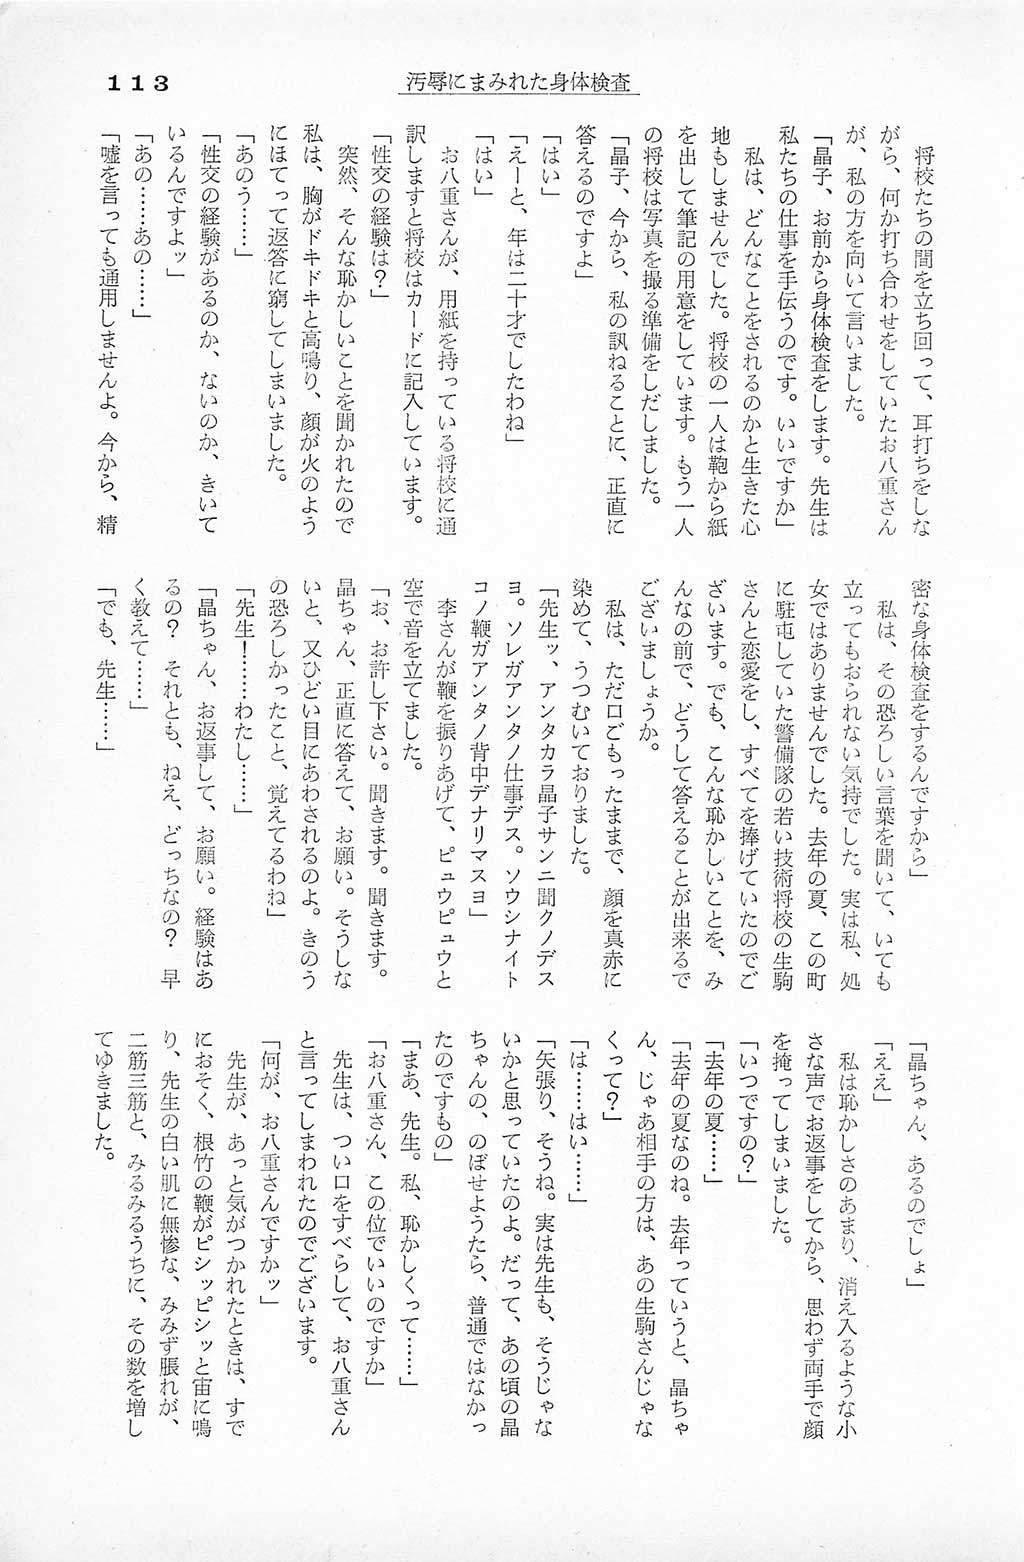 113
汚辱にまみれた身体検査
将校たちの間を立ち回って、耳打ちをしな
がら、何か打ち合わせをしていたお八重さん
が、私の方を向いて言いました。
「晶子、お前から身体検査をします。先生は
私たちの仕事を手伝うのです。いいですか」
私は、どんなことをされるのかと生きた心
地もしませんでした。将校の一人は鞄から紙
を出して筆記の用意をしています。もう一人
の将校は写真を撮る準備をしだしました。
「晶子、今から、私の訊ねることに、正直に
答えるのですよ」
「はい」
「えーと、年は二十才でしたわね」
「はい」
お八重さんが、用紙を持っている将校に通
訳しますと将校はカードに記入しています。
「性交の経験は？」
突然、そんな恥かしいことを聞かれたので
私は、胸がドキドキと高鳴り、顔が火のよう
にほてって返答に窮してしまいました。
「あのう……」
「性交の経験があるのか、ないのか、きいて
いるんですよッ」
「あの……あの……」
「嘘を言っても通用しませんよ。今から、精
密な身体検査をするんですから」
私は、その恐ろしい言葉を聞いて、いても
立ってもおられない気持でした。実は私、処
女ではありませんでした。去年の夏、この町
に駐屯していた警備隊の若い技術将校の生駒
さんと恋愛をし、すべてを捧げていたのでご
ざいます。でも、こんな恥かしいことを、み
んなの前で、どうして答えることが出来るで
ございましょうか。
私は、ただ口ごもったままで、顔を真赤に
染めて、うつむいておりました。
「先生ッ、アンタカラ晶子サンニ聞クノデス
ヨ。ソレガアンタノ仕事デス。ソウシナイト
コノ鞭ガアンタノ背中デナリマスヨ」
李さんが鞭を振りあげて、ピュウピュウと
空で音を立てました。
「お、お許し下さい。聞きます。聞きます。
晶ちゃん、正直に答えて、お願い。そうしな
いと、又ひどい目にあわされるのよ。きのう
の恐ろしかったこと、覚えてるわね」
「先生！……わたし……」
「晶ちゃん、お返事して、お願い。経験はあ
るの？　それとも、ねえ、どっちなの？　早
く教えて……」
「でも、先生……」
「晶ちゃん、あるのでしょ」
「ええ」
私は恥かしさのあまり、消え入るような小
さな声でお返事をしてから、思わず両手で顔
を掩ってしまいました。
「いつですの？」
「去年の夏……」
「去年の夏なのね。去年っていうと、晶ちゃ
ん、じゃあ相手の方は、あの生駒さんじゃな
くって？」
「は……はい……」
「矢張り、そうね。実は先生も、そうじゃな
いかと思っていたのよ。だって、あの頃の晶
ちゃんの、のぼせようたら、普通ではなかっ
たのですもの」
「まあ、先生。私、恥かしくって……」
「お八重さん、この位でいいのですか」
先生は、つい口をすべらして、お八重さん
と言ってしまわれたのでございます。
「何が、お八重さんですかッ」
先生が、あっと気がつかれたときは、すで
におそく、根竹の鞭がピシッピシッと宙に鳴
り、先生の白い肌に無惨な、みみず脹れが、
二筋三筋と、みるみるうちに、その数を増し
てゆきました。